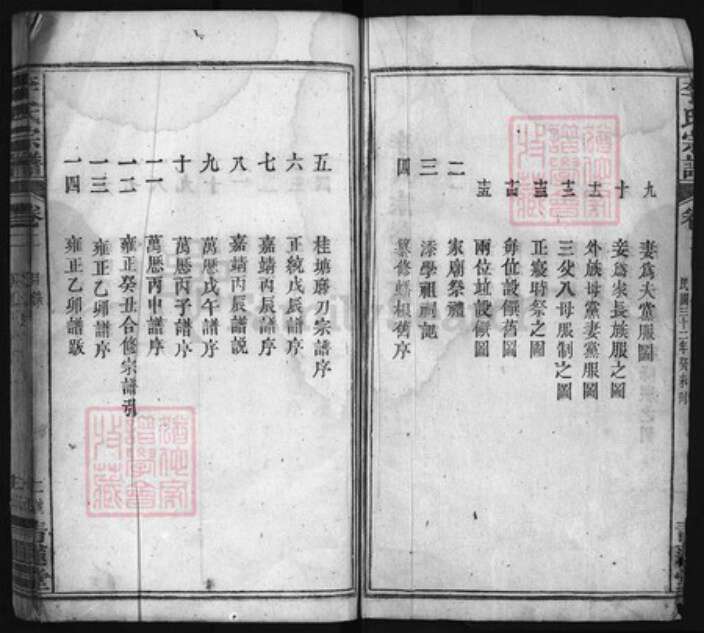 九 妻爲夫黨服圖
十 妾爲家長族服之圖
十一 外族母黨妻黨服圖
十二 三父八母服制之圖
十三 正寢時祭之圖
十四 每位設饌舊圖
十五 兩位並設饌圖
二 家廟祭禮
三 添學祖祠記
四 纂修蟠根舊序
五 桂塘磨刀宗譜序
六 正統戊辰譜序
七 嘉靖丙辰譜序
八 嘉靖丙辰譜説
九 萬歷戊午譜序
十 萬歷丙子譜序
一一 萬歷丙申譜序
一二 雍正癸丑合修宗譜引
一三 雍正乙卯譜序
一四 雍正乙卯譜跋
李氏宗譜